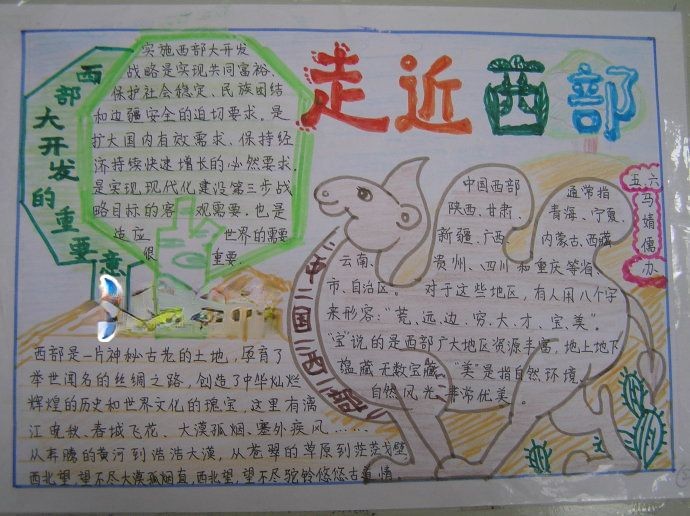 走近西部
西部大开发的重要意
实施西部大开发
战略是实现共同富裕、
保护社会稳定、民族团结
和边疆安全的迫切要求。是
扩大国内有效需求、保持经
济持续快速增长的必然要求。
是实现现代化建设第三步战
略目标的客观需要。也是
适应世界的需要
很重要.
五、六
马婧儒
办
中国西部通常指
陕西、甘肃、青海、宁夏、
新疆、广西、内蒙古、西藏
云南、贵州、四川和重庆等省、
市、自治区。对于这些地区，有人用八个字
来形容：“荒、远、边、穷、大、才、宝、美”。
“宝”说的是西部广大地区资源丰富，地上地下
蕴藏无数宝藏、“美”是指自然环境、
自然风光、非常优美。
中国西部
西部是一片神秘古老的土地，原育了
举世闻名的丝绸之路，创造了中华灿烂
辉煌的历史和世界文化的瑰宝，这里有漓
江电秋、春城飞花、大漠孤烟、塞外疾风……
从奔腾的黄河到浩浩大漠，从苍翠的草原到茫茫戈壁，
西北望，望不尽大漠孤烟直，西北望，望不尽驼铃悠悠古道情。